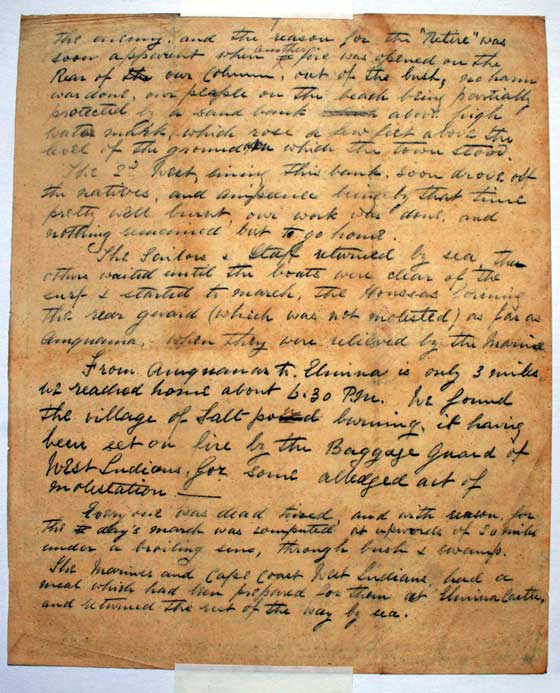 the enemy, and the reason for the "Retire" was
soon apparent when another fire was opened on the
Rear of our Column, out of the bush, no harm
was done, our people on the beach being partially
protected by a sand bank above high
water mark, which rose a few feet above the
level of the ground on which the town stood.
The 2nd West, lining this bank, soon drove off
the natives, and being by that time
pretty well burnt, our work was done, and
nothing remained, but to go home.
The Sailors & Staff returned by sea, the
others waited until the boats were clear of the
surf & started to march, the Houssas forming
the rear guard (which was not molested) as far as
Amquana, when they were relieved by the Marines
From Amquana to Elmina is only 3 miles
we reached home about 6.30 P.M. We found
the village of Salt-pond burning, it having
been set on fire by the Baggage Guard of
West Indians, for some alledged act of
molestation —
Every one was dead tired, and with reason, for
the day's march was computed at upwards of 20 miles
under a broiling sun, through bush & swamp.
The Marines and Cape Coast West Indians, had a
meal which had been prepared for them at Elmina Castle,
and returned the rest of the way by sea.